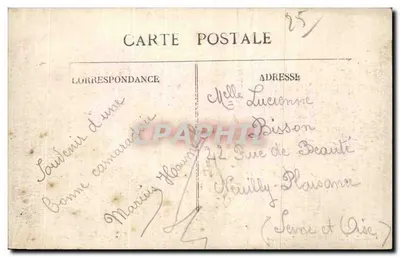 25
CARTE POSTALE
CORRESPONDANCE
ADRESSE
Souvenir d'une
bonne camaraderie
Melle Lucienne
Bisson
42 Rue de Beauté
Neuilly-Plaisance
(Seine et Oise)
Cartes